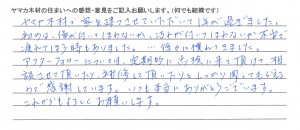 ヤマカ木材の住まいへの感想・意見をご記入お願いします。(何でも結構です)
ヤマカ木材で家を建てさせていただいて1年が過ぎました。
初めは、傷が付いてはわないか、汚れが付いてはわないか不安で
疲れてしまう時もありました。…徐々に慣れてきました。
アフターフォローについては、定期的に点検に来て頂けて、相
談させて頂いたり、補修して頂いたりとしっかり関してもらえる
ので感謝しています。いつも本当にありがとうございます。
これからもよろしくお願いします。